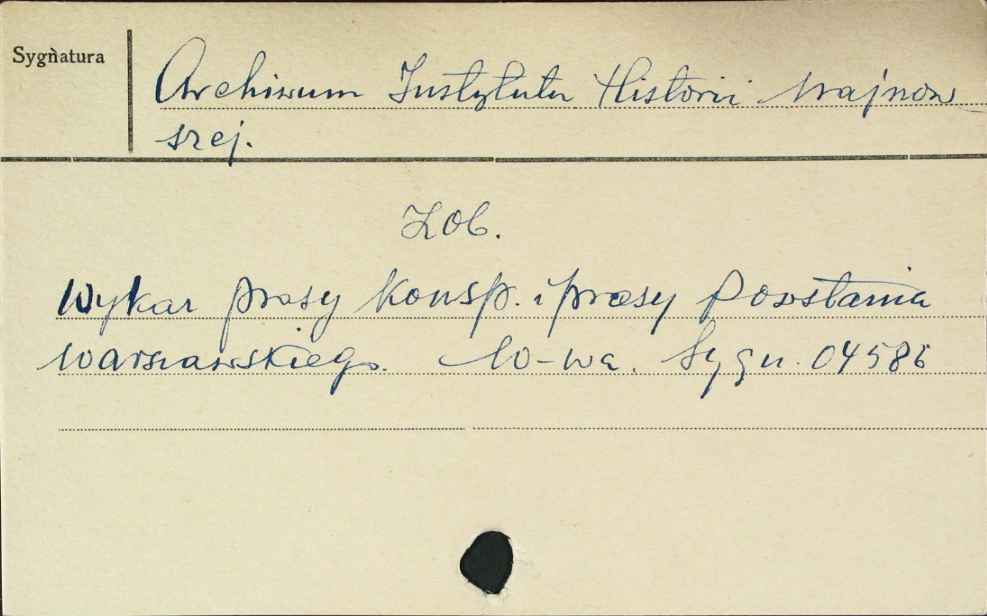 Sygnatura
Archiwum Instytutu Historii Najnow
szej.
Zob.
Wykaz prasy konsp. i prasy Powstania
Warszawskiego. W-wa. Sygn. 04586